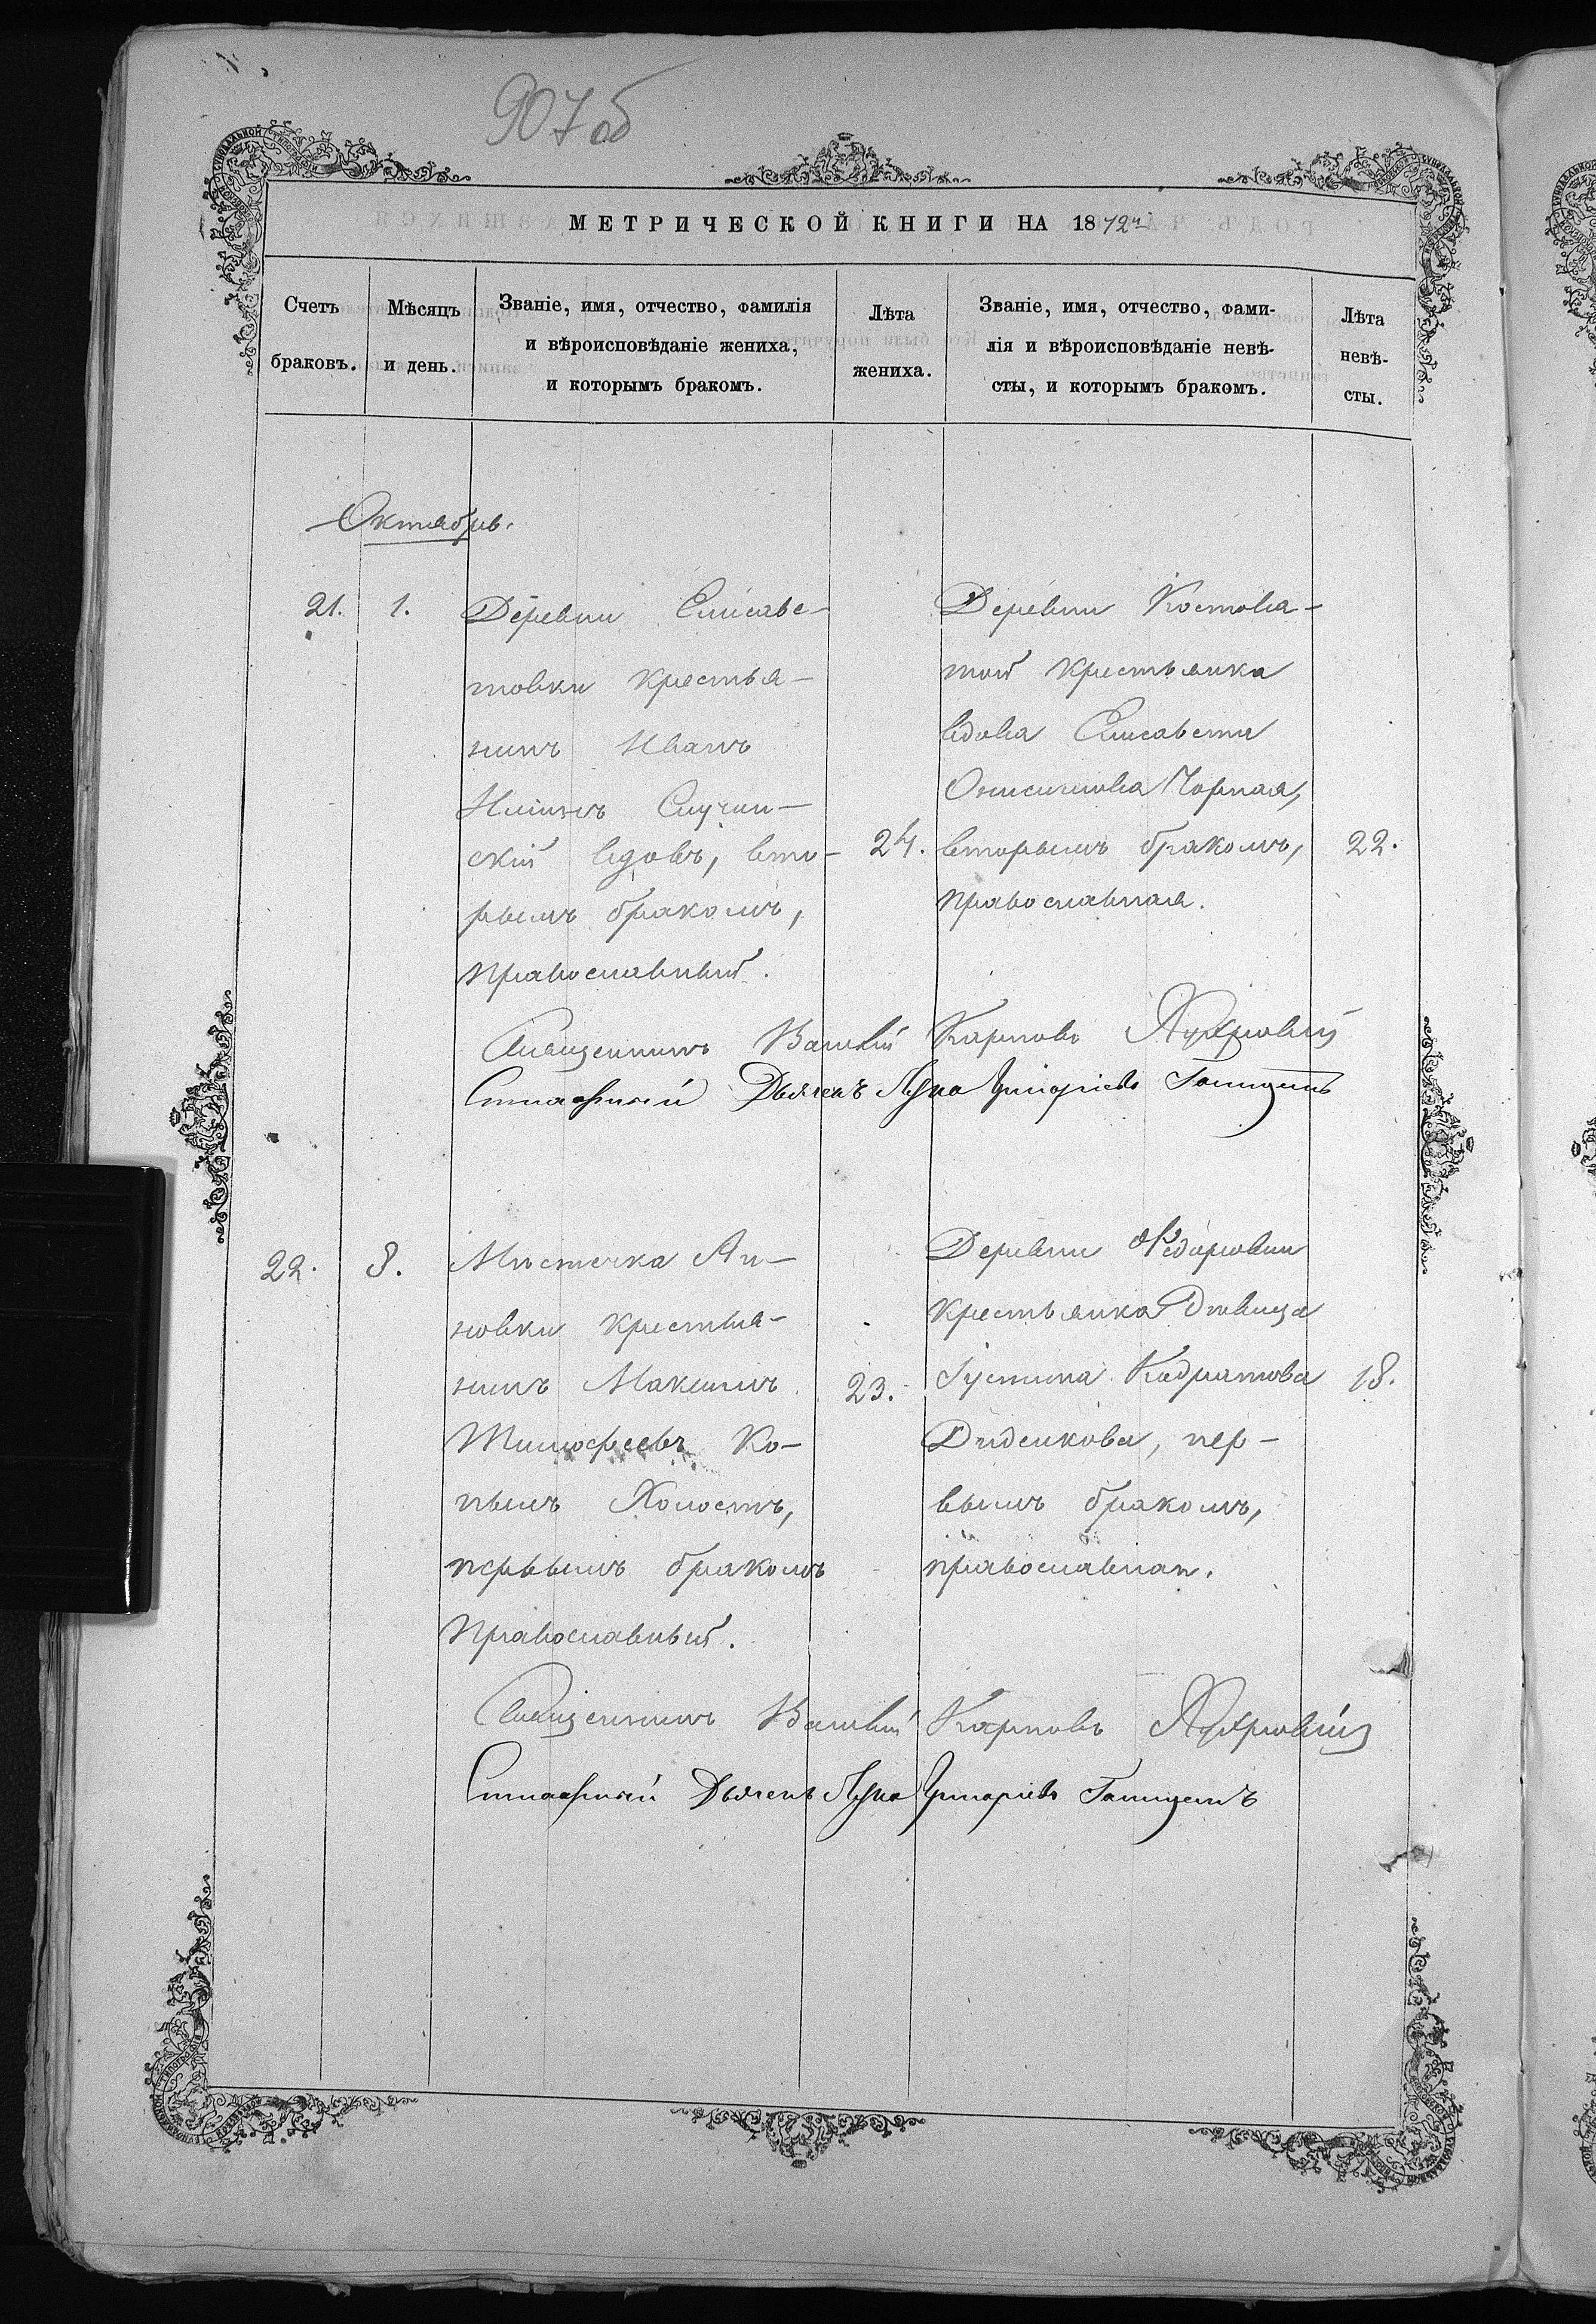 907 об
МЕТРИЧЕСКОЙ КНИГИ НА 1872 г.
Счетъ браковъ.
Мѣсяцъ и день.
Званіе, имя, отчество, фамилія
и вѣроисповѣданіе жениха,
и которымъ бракомъ.
Лѣта жениха.
Званіе, имя, отчество, фами-
лія и вѣроисповѣданіе невѣ-
сты, и которымъ бракомъ.
Лѣта невѣ-
сты.
Октябрь.
21. 1.
Деревни Елисаве-
товки крестья-
нинъ Иванъ
скій вдовъ, вто-
рымъ бракомъ,
православный.
24.
Деревни Костова-
той крестьянка
вдова Елисавета
Онисимова Чорная,
вторымъ бракомъ,
православная.
22.
Священникъ Василій Карповъ
Дьячекъ Лука Григоріевъ
22. 8.
Мѣстечка Ан-
новки крестья-
нинъ Максимъ
Тимофеевъ Ко-
пылъ Холостъ,
первымъ бракомъ
Православный.
23.
Деревни Федоровки
крестьянка Дѣвица
Іустина Кодратова
Дидейкова, пер-
вымъ бракомъ,
православная.
18.
Священникъ Василій Карповъ
Дьячекъ Лука Григоріевъ